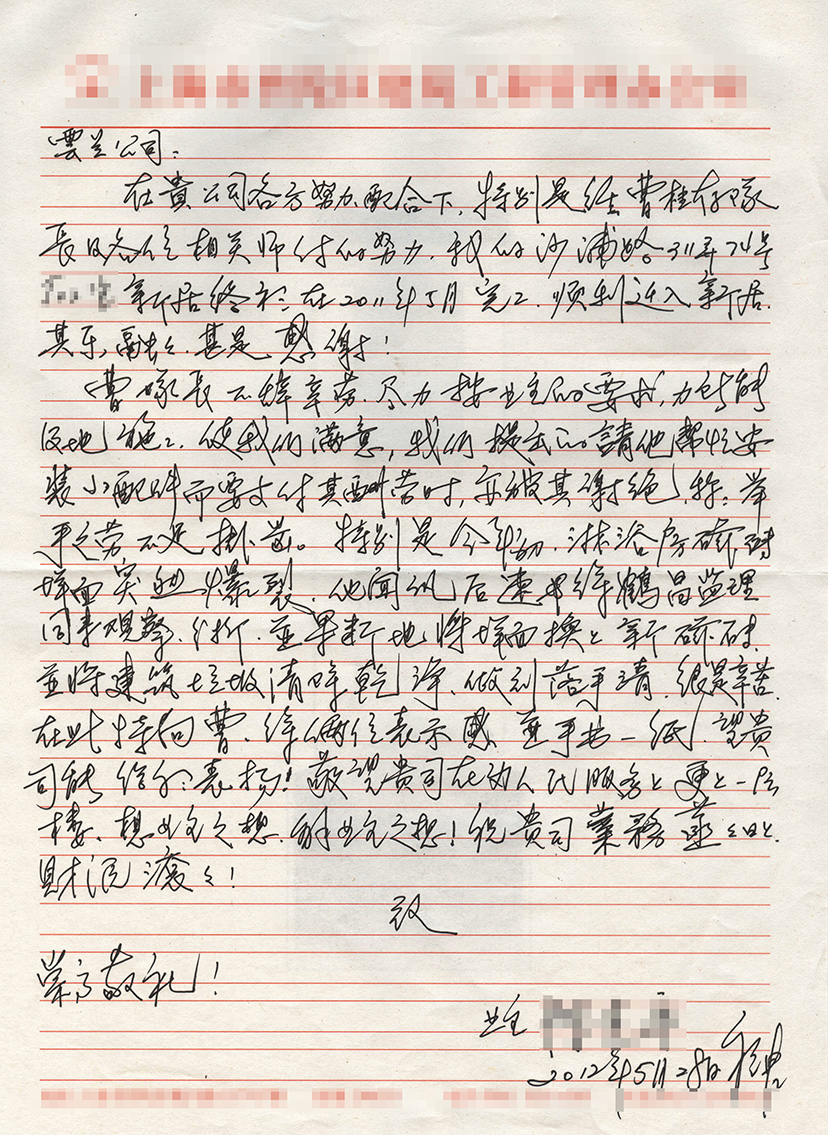 雲兰公司：
在貴公司各方努力配合下，特别是经曹桂存隊
長及各位相关师付的努力，我的沙浦路311弄74号
新居终於在2011年5月完工，顺利迁入新居，
其乐融々，甚是感谢！
曹隊長不辞辛劳，尽力按业主的要求，力所能
及地施工，使我们满意，我们提出的請他幫忙安
装小配件而要支付其酬劳时，亦被其谢绝，称：举
手之劳，不足挂齿。特别是今年初，淋浴房磁砖
墙面突然爆裂，他闻讯后速与徐鶴昌监理
同来观察、分析，並果断地将墙面换上新磁砖，
並将建筑垃圾清除乾净，做到落手清，很是辛苦，
在此特向曹、徐俩位表示感，並手书一纸，望貴
司能给於表扬！敬望貴司在为人民服务上更上一层
楼，想业主之想，解业主之想！祝貴司業務蒸々日上，
財源滚々！
致
崇高敬礼！
业主
2012年5月28日